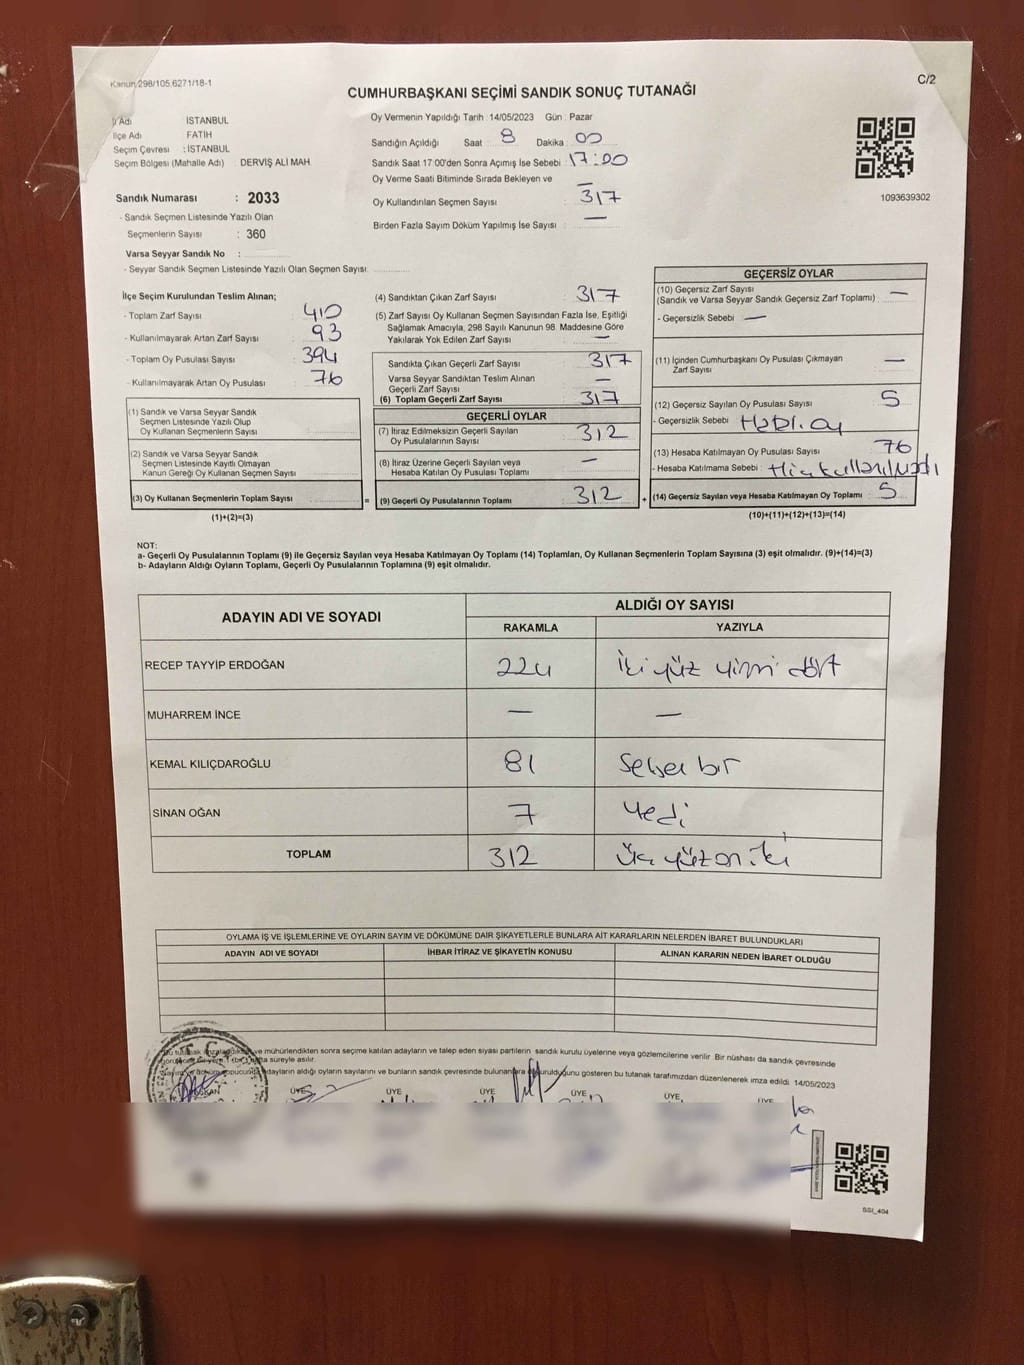 Kanun 298/105,6271/18-1
C/2
CUMHURBAŞKANI SEÇİMİ SANDIK SONUÇ TUTANAĞI
İl Adı İSTANBUL
İlçe Adı FATİH
Seçim Çevresi : İSTANBUL
Seçim Bölgesi (Mahalle Adı) : DERVİŞ ALİ MAH
Sandık Numarası : 2033
- Sandık Seçmen Listesinde Yazılı Olan
Seçmenlerin Sayısı : 360
Varsa Seyyar Sandık No :
- Seyyar Sandık Seçmen Listesinde Yazılı Olan Seçmen Sayısı
Oy Vermenin Yapıldığı Tarih : 14/05/2023 Gün : Pazar
Sandığın Açıldığı Saat 8 Dakika 00
Sandık Saat 17:00'den Sonra Açımış İse Sebebi : 17:00
Oy Verme Saati Bitiminde Sırada Bekleyen ve —
Oy Kullandırılan Seçmen Sayısı : 317
Birden Fazla Sayım Döküm Yapılmış İse Sayısı : —
1093639302
İlçe Seçim Kurulundan Teslim Alınan;
- Toplam Zarf Sayısı : 410
- Kullanılmayarak Artan Zarf Sayısı : 93
- Toplam Oy Pusulası Sayısı : 394
- Kullanılmayarak Artan Oy Pusulası : 76
(1) Sandık ve Varsa Seyyar Sandık
Seçmen Listesinde Yazılı Olup
Oy Kullanan Seçmenlerin Sayısı
(2) Sandık ve Varsa Seyyar Sandık
Seçmen Listesinde Kayıtlı Olmayan
Kanun Gereği Oy Kullanan Seçmen Sayısı
(3) Oy Kullanan Seçmenlerin Toplam Sayısı =
(1)+(2)=(3)
(4) Sandıktan Çıkan Zarf Sayısı : 317
(5) Zarf Sayısı Oy Kullanan Seçmen Sayısından Fazla İse, Eşitliği
Sağlamak Amacıyla, 298 Sayılı Kanunun 98. Maddesine Göre
Yakılarak Yok Edilen Zarf Sayısı : —
Sandıkta Çıkan Geçerli Zarf Sayısı : 317
Varsa Seyyar Sandıktan Teslim Alınan
Geçerli Zarf Sayısı : —
(6) Toplam Geçerli Zarf Sayısı : 317
GEÇERLİ OYLAR
(7) İtiraz Edilmeksizin Geçerli Sayılan
Oy Pusulalarının Sayısı : 312
(8) İtiraz Üzerine Geçerli Sayılan veya
Hesaba Katılan Oy Pusulası Toplamı : —
(9) Geçerli Oy Pusulalarının Toplamı : 312 +
GEÇERSİZ OYLAR
(10) Geçersiz Zarf Sayısı
(Sandık ve Varsa Seyyar Sandık Geçersiz Zarf Toplamı) : —
- Geçersizlik Sebebi : —
(11) İçinden Cumhurbaşkanı Oy Pusulası Çıkmayan
Zarf Sayısı : —
(12) Geçersiz Sayılan Oy Pusulası Sayısı : 5
- Geçersizlik Sebebi :
(13) Hesaba Katılmayan Oy Pusulası Sayısı : 76
- Hesaba Katılmama Sebebi : Hiç kullanılmadı
(14) Geçersiz Sayılan veya Hesaba Katılmayan Oy Toplamı : 5
(10)+(11)+(12)+(13)=(14)
NOT:
a- Geçerli Oy Pusulalarının Toplamı (9) ile Geçersiz Sayılan veya Hesaba Katılmayan Oy Toplamı (14) Toplamları, Oy Kullanan Seçmenlerin Toplam Sayısına (3) eşit olmalıdır. (9)+(14)=(3)
b- Adayların Aldığı Oyların Toplamı, Geçerli Oy Pusulalarının Toplamına (9) eşit olmalıdır.
ADAYIN ADI VE SOYADI ALDIĞI OY SAYISI
RAKAMLA YAZIYLA
RECEP TAYYİP ERDOĞAN 224 iki yüz yirmi dört
MUHARREM İNCE — —
KEMAL KILIÇDAROĞLU 81 seksen bir
SİNAN OĞAN 7 yedi
TOPLAM 312 üç yüz on iki
OYLAMA İŞ VE İŞLEMLERİNE VE OYLARIN SAYIM VE DÖKÜMÜNE DAİR ŞİKAYETLERLE BUNLARA AİT KARARLARIN NELERDEN İBARET BULUNDUKLARI
ADAYIN ADI VE SOYADI İHBAR İTİRAZ VE ŞİKAYETİN KONUSU ALINAN KARARIN NEDEN İBARET OLDUĞU
ve mühürlendikten sonra seçime katılan adayların ve talep eden siyasi partilerin sandık kurulu üyelerine veya gözlemcilerine verilir. Bir nüshası da sandık çevresinde
süreyle asılır.
adayların aldığı oyların sayılarını ve bunların sandık çevresinde bulunanlara duyurulduğunu gösteren bu tutanak tarafımızdan düzenlenerek imza edildi. 14/05/2023
BAŞKAN ÜYE ÜYE ÜYE ÜYE ÜYE ÜYE
SSI_404